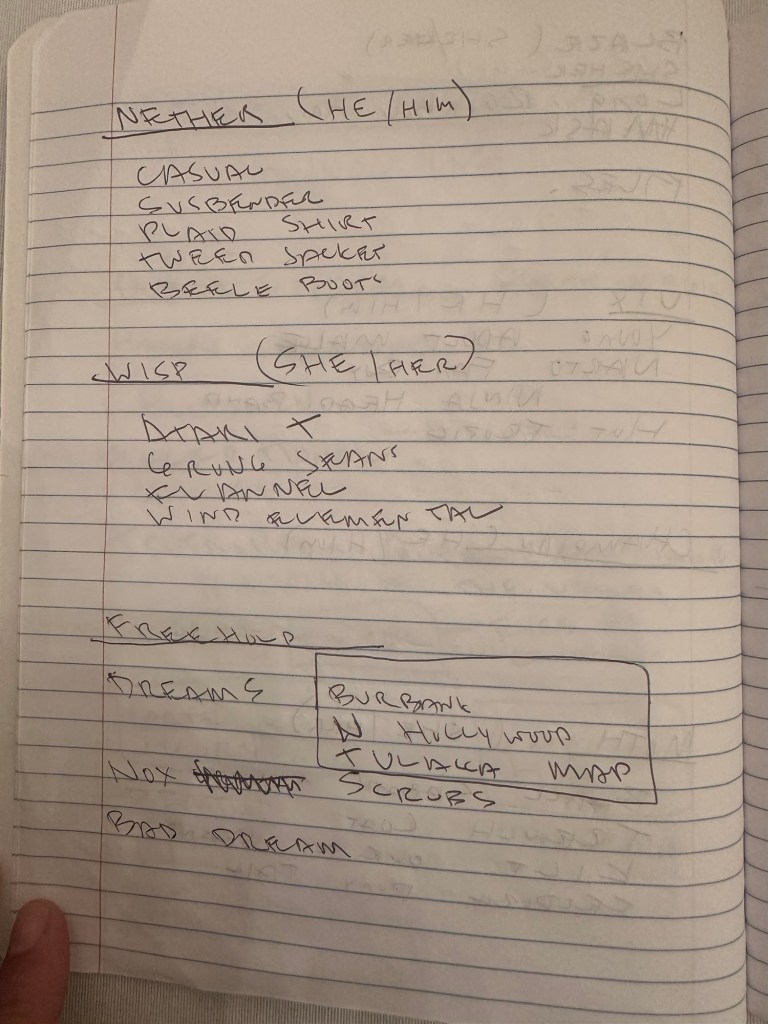 NETHER (HE/HIM)
CASUAL
SUSBENDER
PLAID SHIRT
TWEED JACKET
BEELE BOOTS
WISP (SHE/HER)
ATARI T
GRUNG JEANS
FLANNEL
WIND ELEMENTAL
FREEHOLD
DREAMS
BURBANK
N HOLLYWOOD
TULAKA MAP
NOX SCRUBS
BAD DREAM